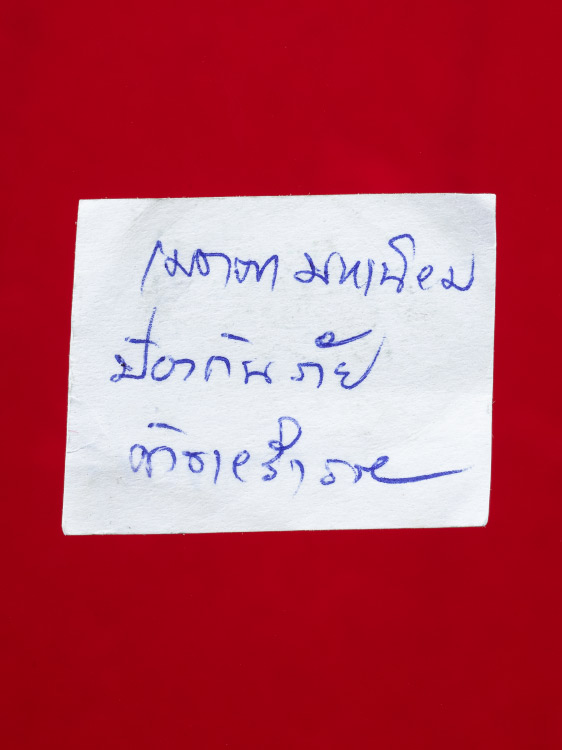 เมตตา มหานิยม
ป้องกัน ภัย
ค้าขายร่ำรวย